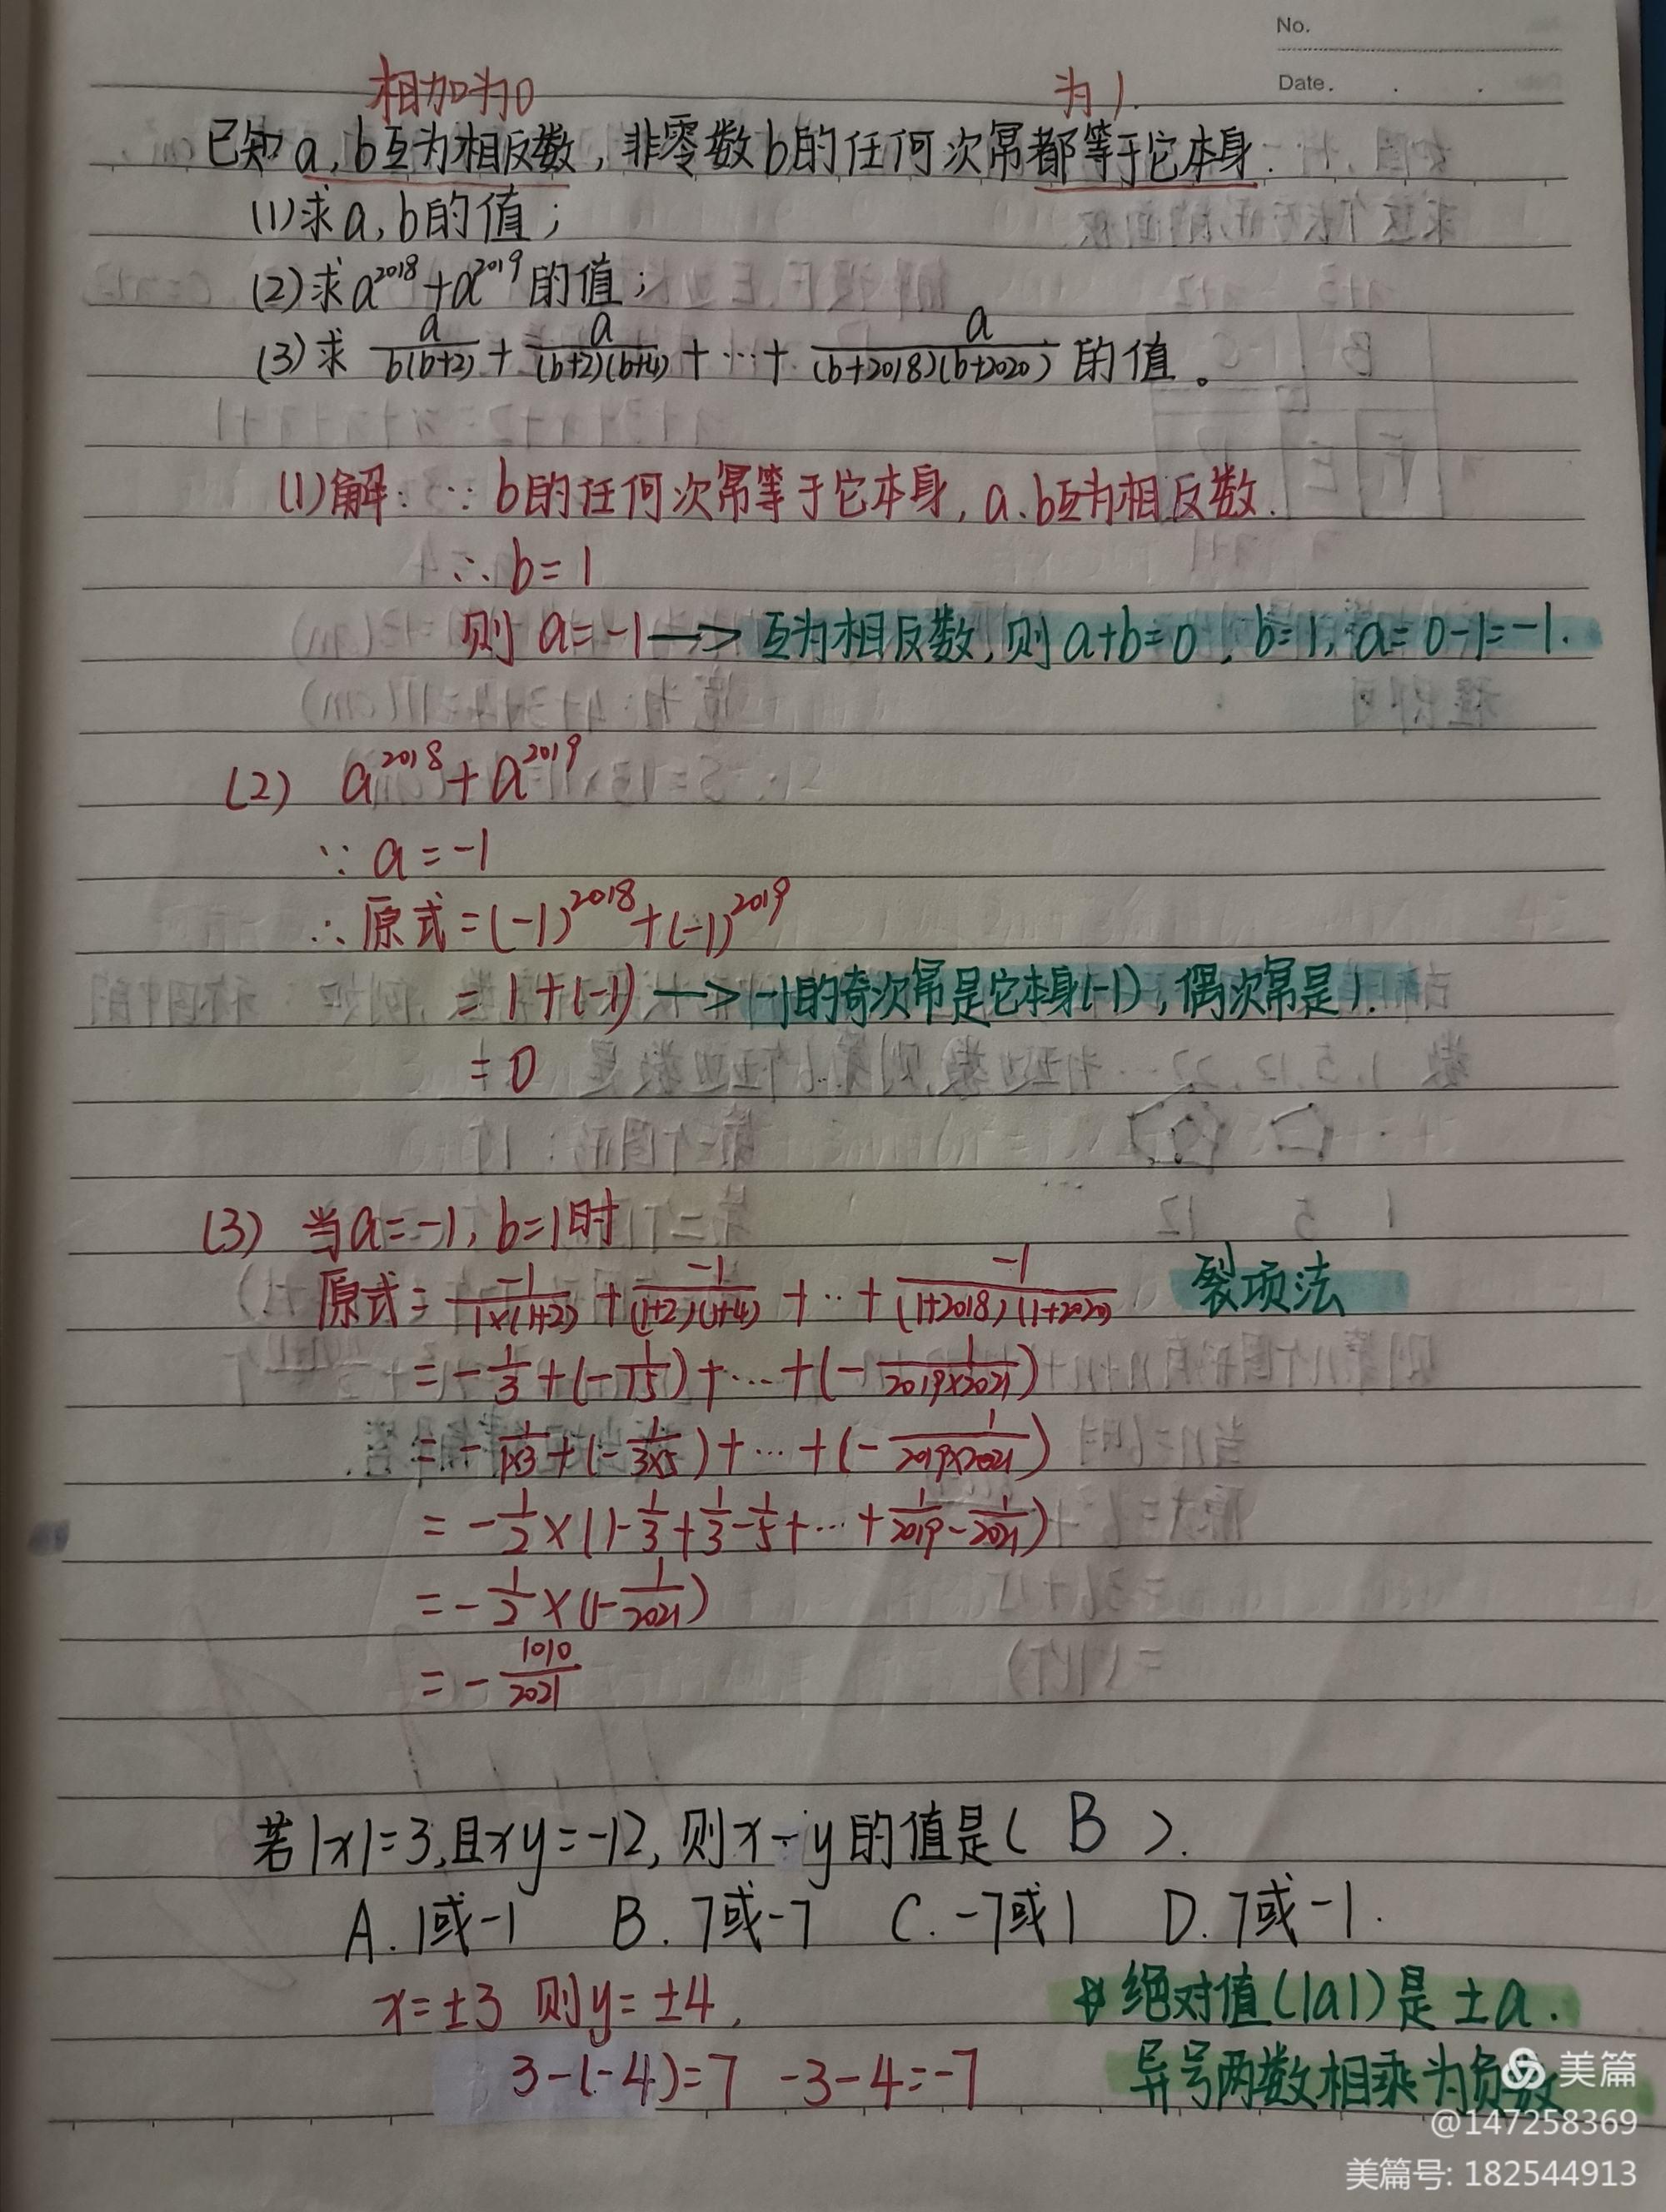 No.
Date.
相加为0 为1.
已知a,b互为相反数,非零数b的任何次幂都等于它本身.
(1)求a,b的值;
(2)求a^2018+a^2019的值;
(3)求 a/b(b+2) + a/(b+2)(b+4) + … + a/(b+2018)(b+2020) 的值。
(1)解: ∵ b的任何次幂等于它本身, a.b互为相反数.
∴ b=1
则 a=-1 → 互为相反数,则a+b=0, b=1, a=0-1=-1.
(2) a^2018+a^2019
∵ a=-1
∴ 原式=(-1)^2018+(-1)^2019
=1+(-1) → -1的奇次幂是它本身(-1),偶次幂是1.
=0
(3) 当a=-1, b=1时
原式= -1/1×(1+2) + -1/(1+2)(1+4) + … + -1/(1+2018)(1+2020) 裂项法
= -1/3+(-1/15)+…+(-1/2019×2021)
= -1/1×3+(-1/3×5)+…+(-1/2019×2021)
= -1/2×(1-1/3+1/3-1/5+…+1/2019-1/2021)
= -1/2×(1-1/2021)
= -1010/2021
若|x|=3,且xy=-12,则x-y的值是( B ).
A.1或-1 B.7或-7 C.-7或1 D.7或-1.
x=±3 则y=±4, 绝对值(|a|)是±a.
3-(-4)=7 -3-4=-7 异号两数相乘为负数
美篇
@147258369
美篇号: 182544913